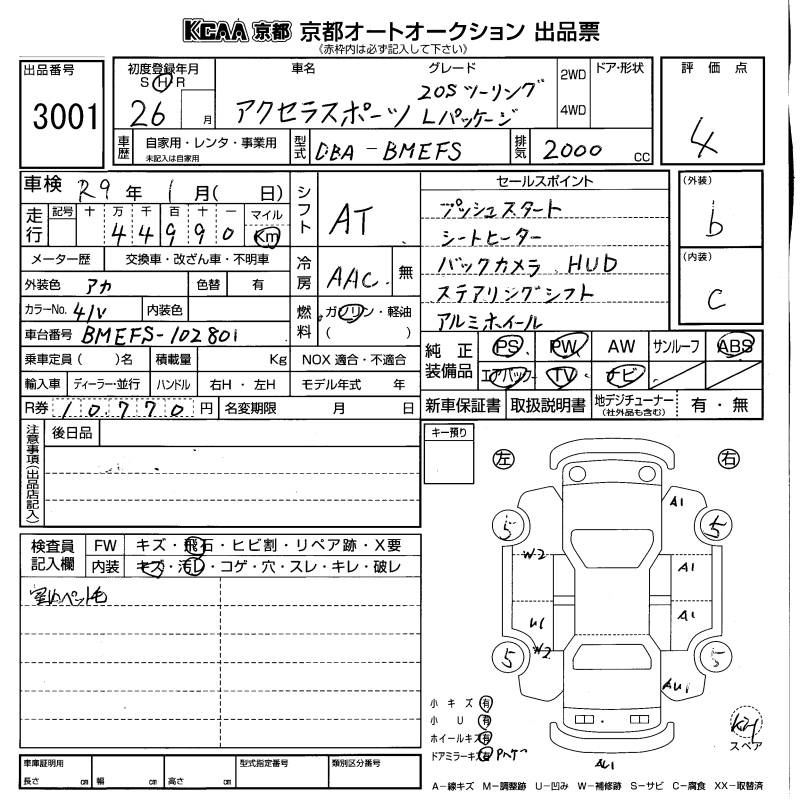 KCAA 京都 京都オートオークション 出品票
《赤枠内は必ず記入して下さい》
出品番号
3001
初度登録年月
S H R
26 月
車名
アクセラスポーツ
グレード
20S ツーリング
Lパッケージ
2WD
4WD
ドア・形状
評価点
4
車歴
自家用・レンタ・事業用
未記入は自家用
型式
DBA-BMEFS
排気
2000 CC
車検 R9 年 1 月( 日)
走行
記号 十 万 千 百 十 一 マイル
4 4 9 9 0 Km
メーター歴 交換車・改ざん車・不明車
外装色 アカ 色替 有
カラーNo. 41V 内装色
車台番号 BMEFS-102801
乗車定員( )名 積載量 Kg
輸入車 ディーラー・並行 ハンドル 右H・左H
R券 10,770 円 名変期限 月 日
シフト AT
冷房 AAC 無
燃料 ガソリン・軽油
( )
NOX 適合・不適合
モデル年式 年
セールスポイント
プッシュスタート
シートヒーター
バックカメラ HUD
ステアリングシフト
アルミホイール
(外装)
b
(内装)
c
純正装備品
PS PW AW サンルーフ ABS
エアバック TV ナビ
新車保証書 取扱説明書 地デジチューナー
(社外品も含む)
有・無
注意事項(出品店記入)
後日品
検査員記入欄
FW キズ・飛石・ヒビ割・リペア跡・X要
内装 キズ・汚レ・コゲ・穴・スレ・キレ・破レ
室内ペット毛
キー預り
左 右
5 5
A1
W2
A1
U1
A1
W2
5 5
AU1
AU1
小キズ 有
小U 有
ホイールキズ 有
ドアミラーキズ 有
KH
スペア
車庫証明用
長さ cm 幅 cm 高さ cm
型式指定番号
類別区分番号
A-線キズ M-調整跡 U-凹み W-補修跡 S-サビ C-腐食 XX-取替済